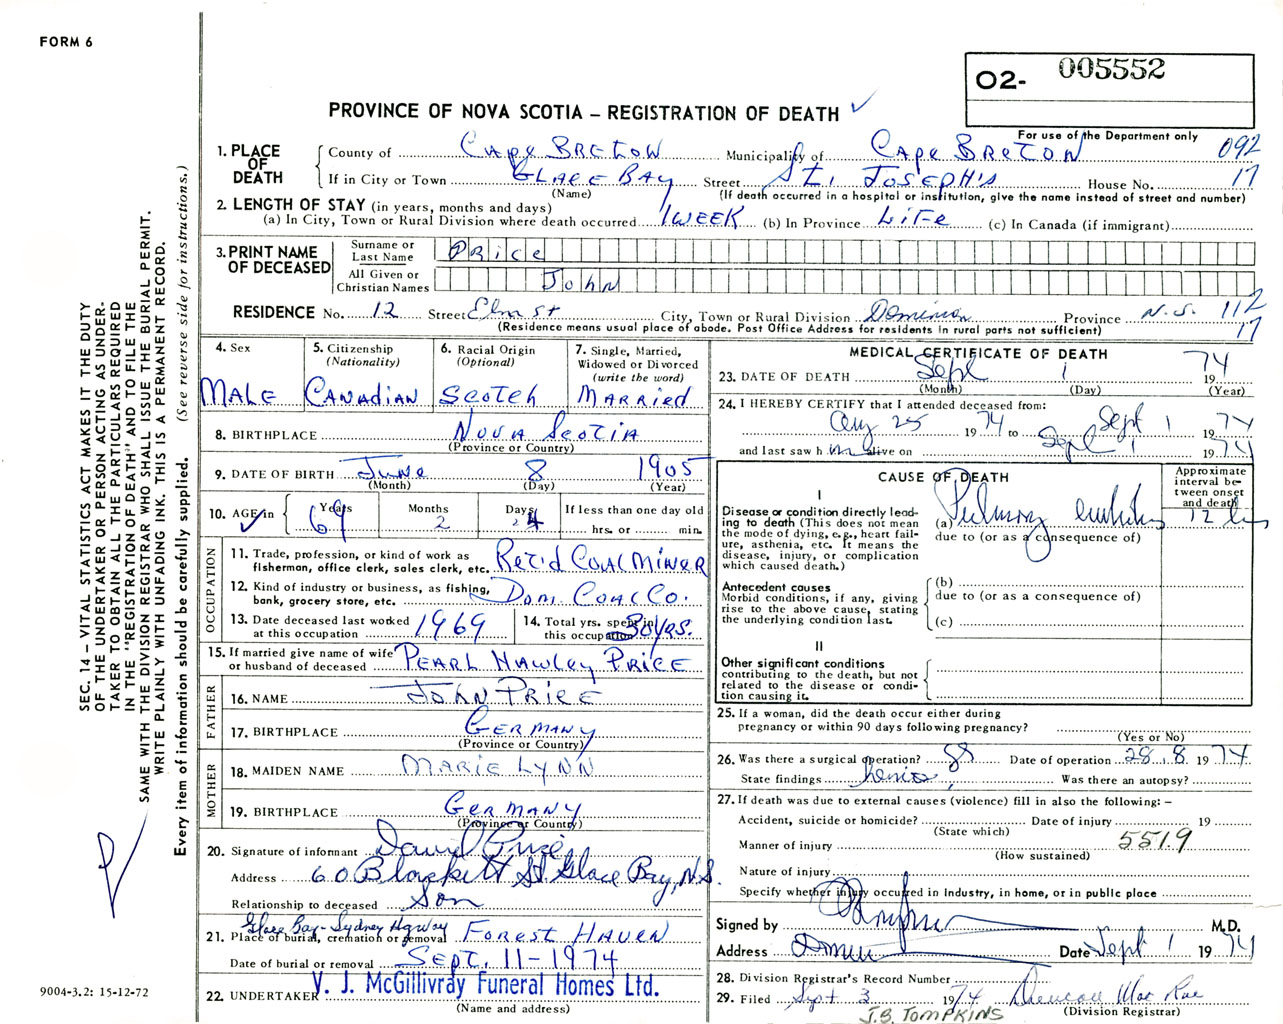 FORM 6
02- 005552
PROVINCE OF NOVA SCOTIA – REGISTRATION OF DEATH ✓
For use of the Department only
1. PLACE OF DEATH
County of Cape BRETON Municipality of CAPe BReTON 092
If in City or Town GLACE BAY Street St. JOSEPH'S House No. 17
(Name) (If death occurred in a hospital or institution, give the name instead of street and number)
2. LENGTH OF STAY (in years, months and days)
(a) In City, Town or Rural Division where death occurred 1 WEEK (b) In Province LiFe (c) In Canada (if immigrant)
3. PRINT NAME OF DECEASED
Surname or Last Name PRice
All Given or Christian Names John
RESIDENCE No. 12 Street Elm st City, Town or Rural Division Dominion Province N.S. 112
17
(Residence means usual place of abode. Post Office Address for residents in rural parts not sufficient)
4. Sex
MALE
5. Citizenship (Nationality)
CANADIAN
6. Racial Origin (Optional)
Scotch
7. Single, Married, Widowed or Divorced (write the word)
MARRied
8. BIRTHPLACE NOVA ScoTiA
(Province or Country)
9. DATE OF BIRTH June 8 1905
(Month) (Day) (Year)
10. AGE in ✓ Years 69 Months 2 Days 24 If less than one day old
hrs. or min.
OCCUPATION
11. Trade, profession, or kind of work as fisherman, office clerk, sales clerk, etc. Ret'd COAL MINER
12. Kind of industry or business, as fishing, bank, grocery store, etc. DOM. COAL CO.
13. Date deceased last worked at this occupation 1969
14. Total yrs. spent in this occupation 30 yrs.
15. If married give name of wife or husband of deceased PEARL HAWLEY PRICE
FATHER
16. NAME JOHN PRICE
17. BIRTHPLACE GERMANY
(Province or Country)
MOTHER
18. MAIDEN NAME MARIE LYNN
19. BIRTHPLACE GeRMANY
(Province or Country)
20. Signature of informant David Price
Address 60 Blackett St Glace Bay, N.S.
Relationship to deceased Son
Glace Bay-Sydney Hgway
21. Place of burial, cremation or removal FOREST HAVEN
Date of burial or removal SEPT. 11-1974
22. UNDERTAKER V. J. McGillivray Funeral Homes Ltd.
(Name and address)
MEDICAL CERTIFICATE OF DEATH
23. DATE OF DEATH Sept 1 1974
(Month) (Day) (Year)
24. I HEREBY CERTIFY that I attended deceased from:
Aug 25 1974 to Sept 1 1974
and last saw h im alive on Sept 1 1974
CAUSE OF DEATH
Approximate interval between onset and death
I
Disease or condition directly leading to death (This does not mean the mode of dying, e.g., heart failure, asthenia, etc. It means the disease, injury, or complication which caused death.)
(a) Pulmonary 12
due to (or as a consequence of)
Antecedent causes
Morbid conditions, if any, giving rise to the above cause, stating the underlying condition last.
(b)
due to (or as a consequence of)
(c)
II
Other significant conditions contributing to the death, but not related to the disease or condition causing it.
25. If a woman, did the death occur either during pregnancy or within 90 days following pregnancy?
(Yes or No)
26. Was there a surgical operation? Date of operation 28 8 1974
State findings hernia Was there an autopsy?
27. If death was due to external causes (violence) fill in also the following: –
Accident, suicide or homicide? Date of injury 19
(State which)
Manner of injury 551.9
(How sustained)
Nature of injury
Specify whether injury occurred in Industry, in home, or in public place
Signed by M.D.
Address Date Sept 1 1974
28. Division Registrar's Record Number
29. Filed Sept 3 1974 Duncan Mac Rae
(Division Registrar)
J.B. TOMPKINS
SEC. 14 – VITAL STATISTICS ACT MAKES IT THE DUTY
OF THE UNDERTAKER OR PERSON ACTING AS UNDER-
TAKER TO OBTAIN ALL THE PARTICULARS REQUIRED
IN THE "REGISTRATION OF DEATH" AND TO FILE THE
SAME WITH THE DIVISION REGISTRAR WHO SHALL ISSUE THE BURIAL PERMIT.
WRITE PLAINLY WITH UNFADING INK. THIS IS A PERMANENT RECORD.
Every item of information should be carefully supplied. (See reverse side for instructions.)
9004-3.2: 15-12-72